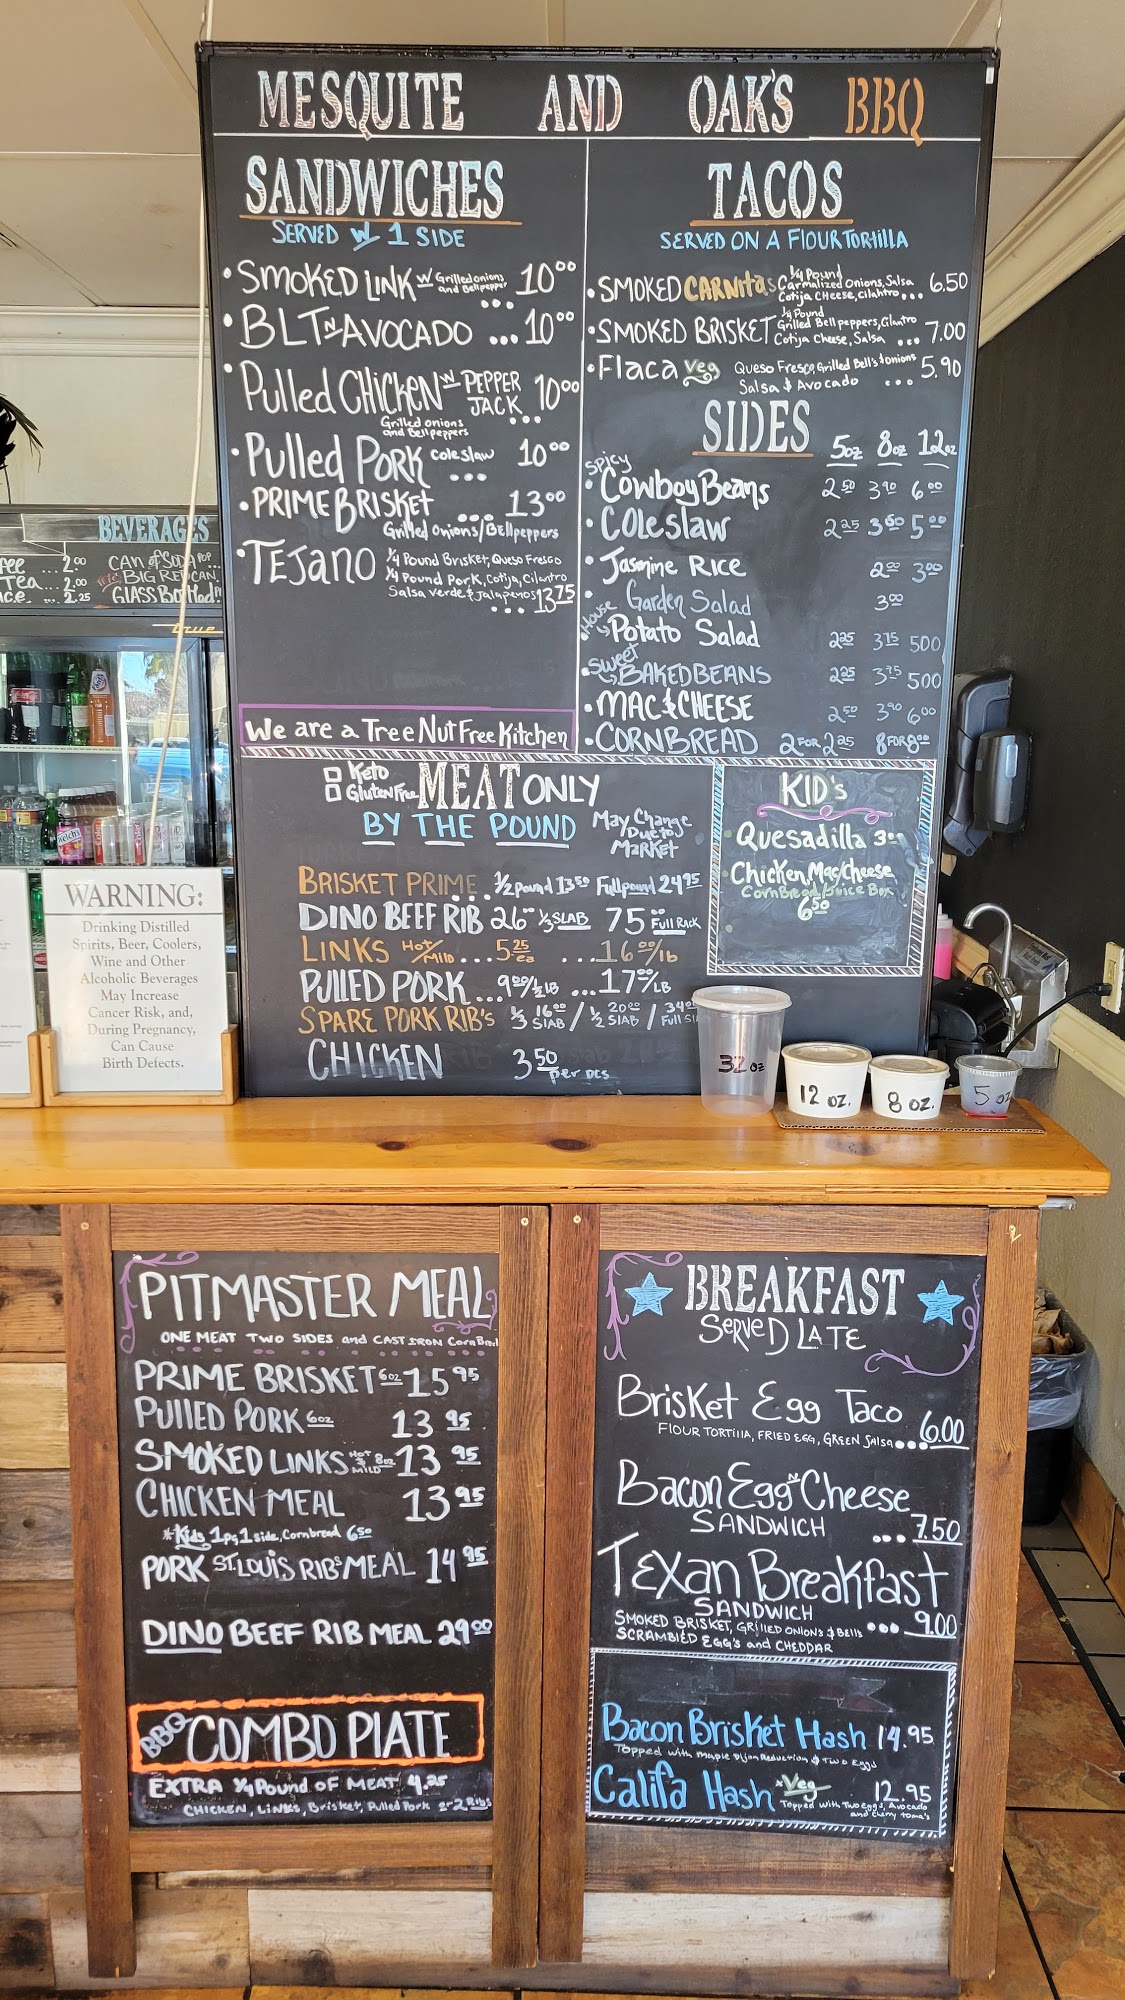 MESQUITE AND OAK'S BBQ
SANDWICHES
SERVED W/ 1 SIDE
• SMOKED LINK W/ Grilled onions and Bellpepper ... 10 00
• BLT N AVOCADO ... 10 00
• Pulled CHICKEN W/ PEPPER JACK ... 10 00
Grilled onions and Bellpeppers
• Pulled PORK coleslaw ... 10 00
• PRIME BRISKET ... 13 00
Grilled Onions/Bellpeppers
• TEJANO 1/4 Pound Brisket, Queso Fresco
1/4 Pound Pork, Cotija, Cilantro
Salsa verde & Jalapenos ... 13 75
We are a Tree Nut Free Kitchen
TACOS
SERVED ON A FLOUR TORTILLA
• SMOKED CARNITAS 1/4 Pound Carmalized Onions, Salsa
Cotija CHeese, Cilantro ... 6.50
• SMOKED BRISKET 1/4 Pound Grilled Bell peppers, Cilantro
Cotija Cheese, Salsa ... 7.00
• Flaca Veg Queso Fresco, Grilled Bell's & onions
Salsa & Avocado ... 5.90
SIDES 5oz 8oz 12oz
• Spicy Cowboy Beans 2 50 3 90 6 00
• Coleslaw 2 25 3 60 5 00
• Jasmine Rice 2 00 3 00
• Garden Salad 3 00
• House Potato Salad 2 25 3 75 500
• Sweet BAKED BEANS 2 25 3 75 500
• MAC & CHEESE 2 50 3 90 6 00
• CORNBREAD 2 FOR 2 25 8 FOR 8 00
Keto
Gluten Free
MEAT ONLY
BY THE POUND
May Change Due to MaRKet
BRISKET PRIME .. 1/2 pound 13 50 Full pound 24 95
DINO BEEF RIB 26 00 1/3 SLAB 75 00 Full Rack
LINKS Hot/Mild ... 5 25 ea ... 16 00/lb
PULLED PORK ... 9 00/1/2 LB ... 17 00/LB
SPARE PORK RIB'S 1/3 16 00 SLAB / 1/2 20 00 SLAB / 34 00 Full
CHICKEN 3 50 per pcs
KID's
• Quesadilla 3 00
• Chicken, Mac/Cheese
CornBread/Juice Box
6 50
BEVERAGES
... 2.00
Tea ... 2.00
... 2.25
CAN of SODA POP
BIG RED CAN
GLASS Bottled
WARNING:
Drinking Distilled
Spirits, Beer, Coolers,
Wine and Other
Alcoholic Beverages
May Increase
Cancer Risk, and,
During Pregnancy,
Can Cause
Birth Defects.
32 oz
12 oz.
8 oz.
5 oz
PITMASTER MEAL
ONE MEAT TWO SIDES and CAST IRON CornBread
PRIME BRISKET 6oz 15 95
PULLED PORK 6oz 13 95
SMOKED LINKS HOT & MILD 8oz 13 95
CHICKEN MEAL 13 95
*Kids 1pc, 1 side, Cornbread 6 50
PORK ST. LOUIS RIB'S MEAL 14 95
DINO BEEF RIB MEAL 29 00
BBQ COMBO PLATE
EXTRA 1/4 POUND OF MEAT 4.25
CHICKEN, LINKS, Brisket, Pulled Pork or 2 Ribs
BREAKFAST
SeRVeD LATE
BrisKet Egg Taco
FLOUR TORTILLA, FRIED EGG, GREEN Salsa ... 6.00
Bacon Egg N Cheese
SANDWICH ... 7.50
TEXan Breakfast
SANDWICH
SMOKED BRISKET, GRILLED ONIONS & BELLS ... 9.00
SCRAMBLED EGG'S and CHEDDAR
Bacon Brisket Hash 14.95
Topped with Maple Dijon Reduction & Two Eggs
Califa Hash *Veg 12.95
Topped with Two eggs, Avocado
and Cherry toma's